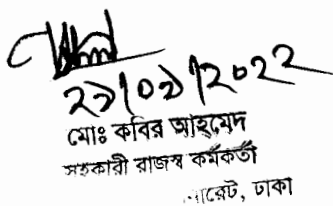 ২১/০১/২০২২
মোঃ কবির আহমেদ
সহকারী রাজস্ব কর্মকর্তা
ারেট, ঢাকা